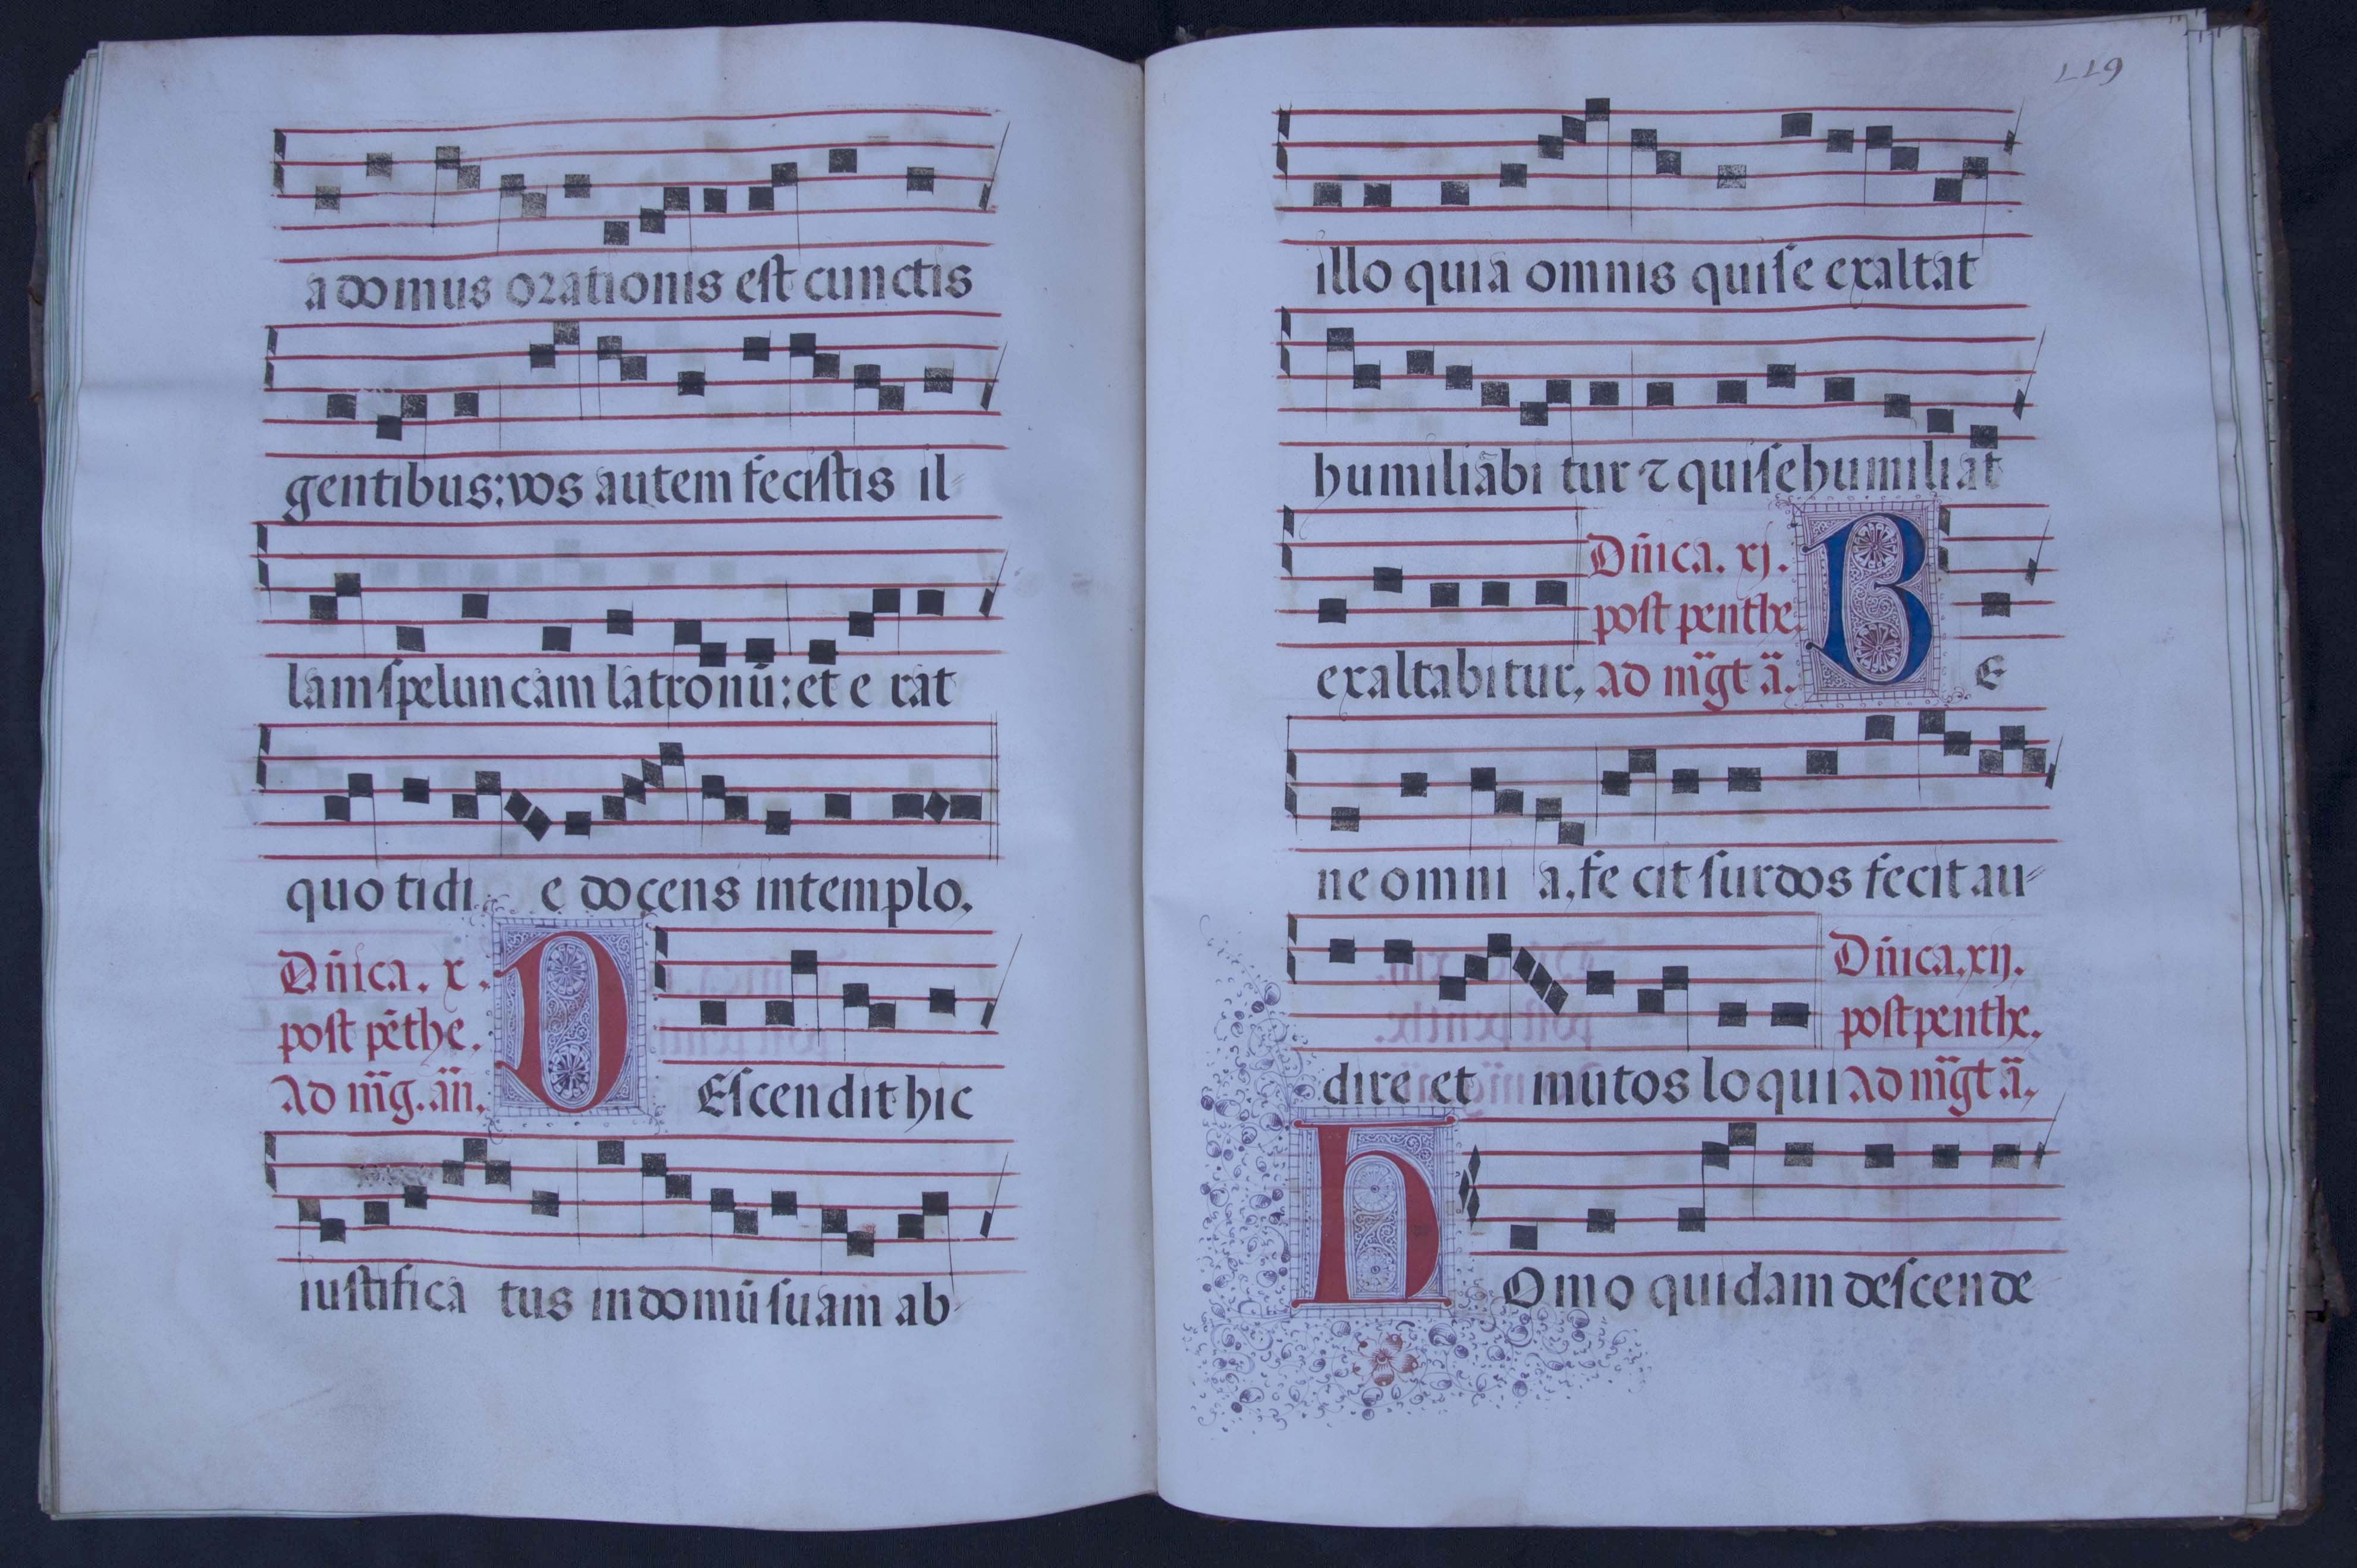 a domus orationis est cunctis
gentibus: vos autem fecistis il-
lam speluncam latronū: et e rat
quo tidi e docens in templo.
Dn̄ica. x.
post pēthe.
Ad m̄g. an̄.
D Escendit hic
iustifica tus in domū suam ab
119
illo quia omnis qui se exaltat
humiliabi tur ⁊ qui se humiliat
exaltabitur,
Dn̄ica. xj.
post penthe.
ad m̄gt ā.
B E
ne omni a, fe cit surdos fecit au-
dire et mutos loqui
Dn̄ica. xij.
post penthe.
Ad m̄gt ā.
h Omo quidam descende